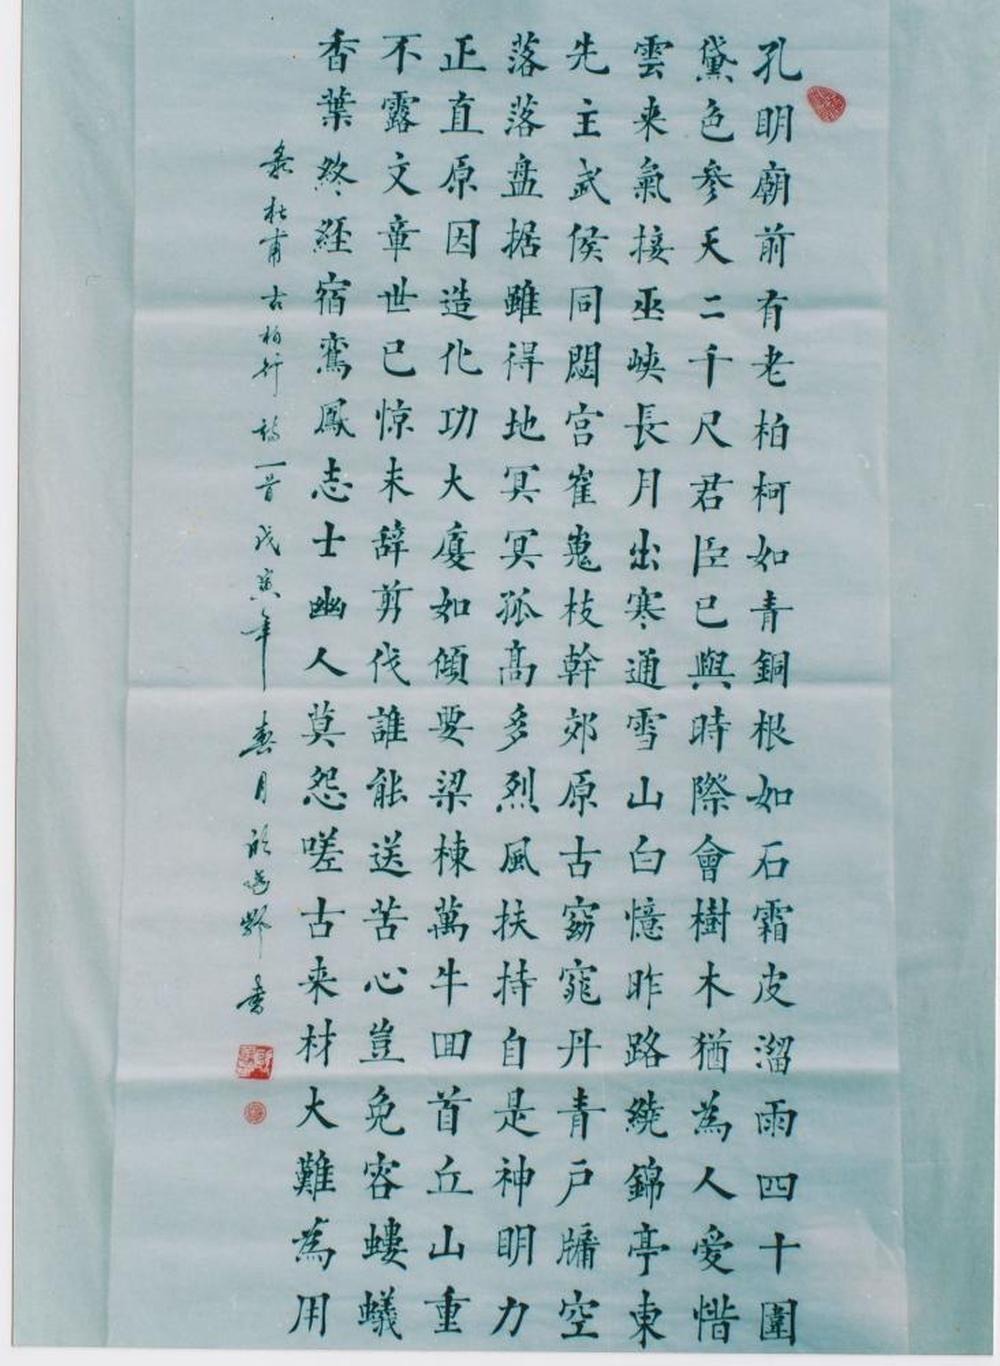 孔明廟前有老柏柯如青銅根如石霜皮溜雨四十圍
黛色參天二千尺君臣已與時際會樹木猶為人愛惜
雲来氣接巫峽長月出寒通雪山白憶昨路繞錦亭東
先主武侯同閟宮崔嵬枝幹郊原古窈窕丹青戶牖空
落落盘据雖得地冥冥孤高多烈風扶持自是神明力
正直原因造化功大廈如傾要梁棟萬牛回首丘山重
不露文章世已惊未辞剪伐誰能送苦心豈免容螻蟻
香葉終經宿鸞鳳志士幽人莫怨嗟古来材大難為用
录杜甫古柏行詩一首戊寅年春月 書